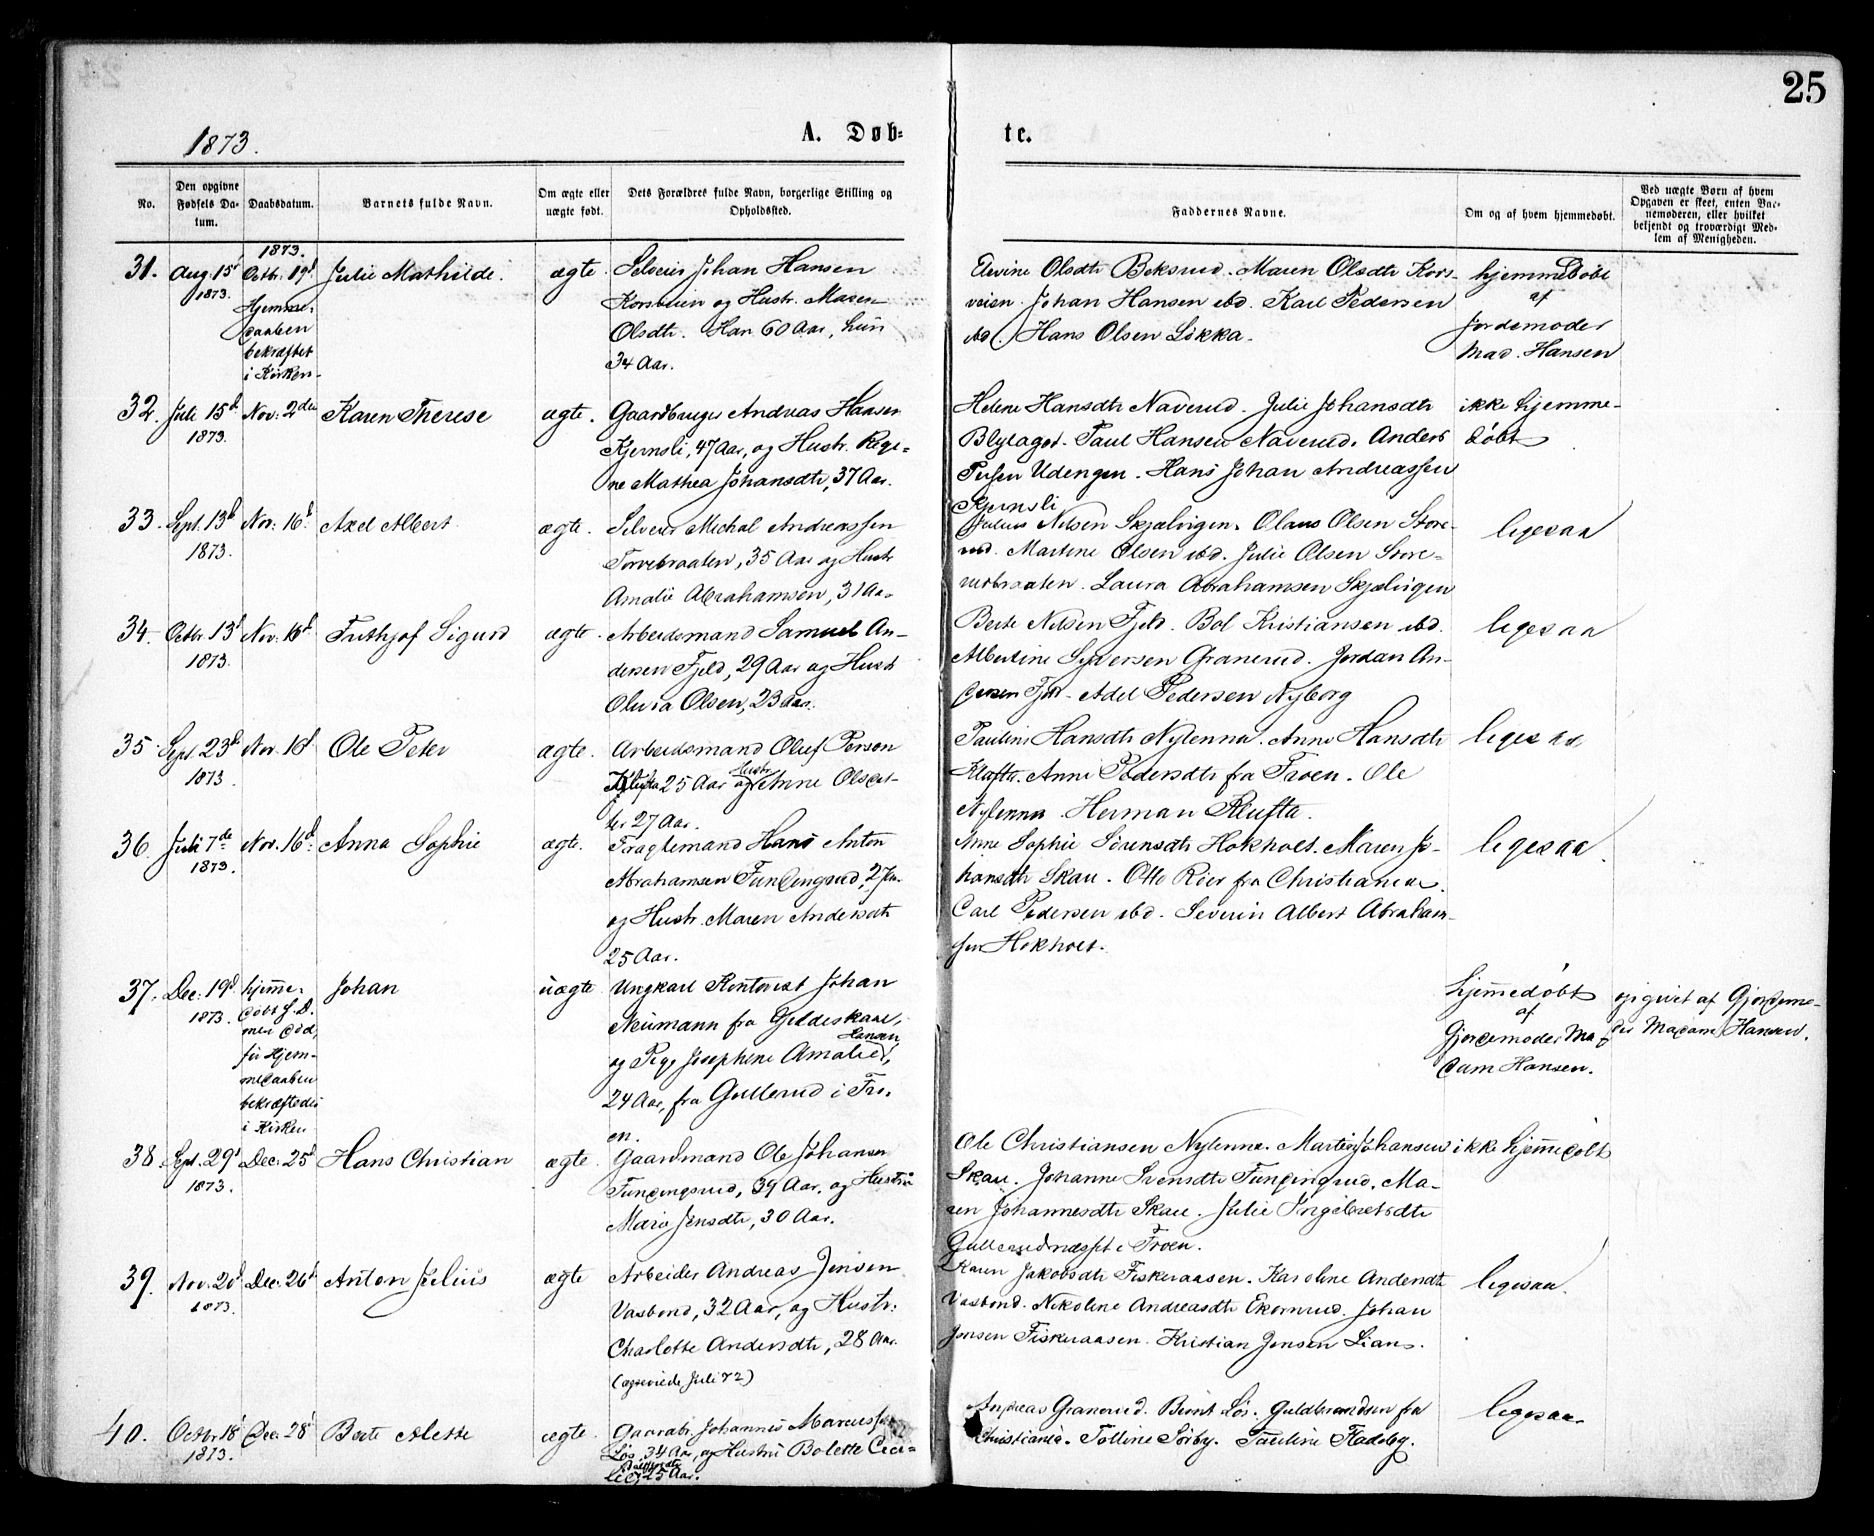 25
1873.
A. Døb=
te.
No.
Den opgivne
Fødsels Da-
tum.
Daabsdatum.
Barnets fulde Navn.
Om ægte eller
uægte født.
Dets Forældres fulde Navn, borgerlige Stilling og
Opholdssted.
Faddernes Navne.
Om og af hvem hjemmedøbt.
Ved uægte Børn af hvem
Opgaven er skeet, enten Bar-
nemoderen, eller hvilket
bekjendt og troværdigt Med-
lem af Menigheden.
31.
Aug. 15d
1873.
1873.
Octbr. 19d
Hjemme-
daaben
bekræftet
i Kirken.
Julie Mathilde.
ægte.
Selveier Johan Hansen
Korsveien og Hustr. Maren
Olsdtr. Han 60 Aar, hun
34 Aar.
Elevine Olsdtr Beksrud. Maren Olsdtr Kors-
veien. Johan Hansen ibd. Karl Pedersen
ibd. Hans Olsen Løkka.
hjemmedøbt
af
Jordemoder
Mad. Hansen
32.
Juli 15d
1873.
Nov: 2den
Karen Therese
ægte.
Gaardbruger Andreas Hansen
Kjernsli, 47 Aar, og Hustr. Rege-
ne Mathea Johansdtr, 37 Aar.
Helene Hansdtr Naverud. Julie Johansdtr
Blylaget. Paul Hansen Naverud. Anders
Persen Udengen. Hans Johan Andreassen
Kjernsli
ikke hjemme-
døbt
33.
Sept. 13d
1873.
Nov: 16d
Axel Albert
ægte.
Selveier Michal Andreassen
Torvebraaten, 35 Aar og Hustr
Amalie Abrahamsen, 31 Aar
Julius Nilsen Skjælvigen. Olaus Olsen Store-
rud. Martine Olsen ibd. Julie Olsen Store-
rudbraaten. Laura Abrahamsen Skjælvigen
ligesaa
34.
Octbr 13d
1873.
Nov: 16d
Frithjof Sigurd
ægte.
Arbeidsmand Samuel An-
dersen Fjeld, 29 Aar og Hustr
Oluva Olsen, 23 Aar.
Berte Nilsen Fjeld. Bol Kristiansen ibd.
Albertine Syversen Granerud. Jordan An-
dersen Fjeld. Adel Pedersen Nyborg
ligesaa
35.
Sept. 23d
1873.
Nov. 16d
Ole Peter
ægte.
Arbeidsmand Oluf Person
Klufta 25 Aar og Hustr Anne Olsdat-
ter 27 Aar.
Pauline Hansdtr Nylenna. Anne Hansdtr
Klofta. Anne Pedersdtr fra Froen. Ole
Nylenna. Herman Klufta.
ligesaa
36.
Juli 7de
1873.
Nov. 16d
Anna Sophie
ægte.
Fragtemand Hans Anton
Abrahamsen Fundingsrud, 27 Aar
og Hustr. Maren Andersdtr
25 Aar.
Anne Sophie Sørensdtr Hokholt. Maren Jo-
hansdtr Skau. Otto Roer fra Christiania.
Carl Pedersen ibd. Severin Albert Abraham-
sen Hokholt.
ligesaa.
37.
Dec. 19d
1873.
hjemme-
døbt s. D.
men død,
før Hjem-
medaaben
bekræftedes
i Kirken
Johan
uægte
Ungkarl Kontorist Johan
Neumann fra Gildeskaal,
og Pige Josephine Amalie Hansen,
24 Aar, fra Gullerud i Fro-
en.
hjemmedøbt
af
Gjordemoder Ma-
dam Hansen.
opgivet af Gjordemo-
der Madam Hansen.
38
Sept. 29d
1873.
Dec. 25d
Hans Christian
ægte
Gaardmand Ole Johansen
Fundingsrud, 39 Aar, og Hustru
Marie Jensdtr, 30 Aar.
Ole Christiansen Nylenna. Martin Johansen
Skau. Johanne Svensdtr Fundingsrud. Ma-
ren Johannesdtr Skau. Julie Ingebretsdtr
Gullerudnæsset i Froen.
ikke hjemmedøbt
39.
Nov. 20d
1873.
Dec. 26d
Anton Julius
ægte
Arbeider Andreas Jensen
Vasbond, 32 Aar, og Hustr:
Charlotte Andersdtr, 28 Aar.
(ægteviede Juli 72)
Karen Jakobsdtr Fiskeraasen. Karoline Andersdtr
Vasbond. Nikoline Andreasdtr Ekornrud. Johan
Jensen Fiskeraasen. Kristian Jensen Lians.
ligesaa.
40.
Octbr 18d
1873.
Dec. 28d
Berte Alette
ægte.
Gaardbr. Johannes Marcussen
Løs, 34 Aar, og Hustru Bolette Ceci-
lie 25 Aar.
Andreas Granerud. Bernt Løs. Guldbrandsen fra
Christiania. Tolline Sørby. Pauline Fladeby.
ligesaa.